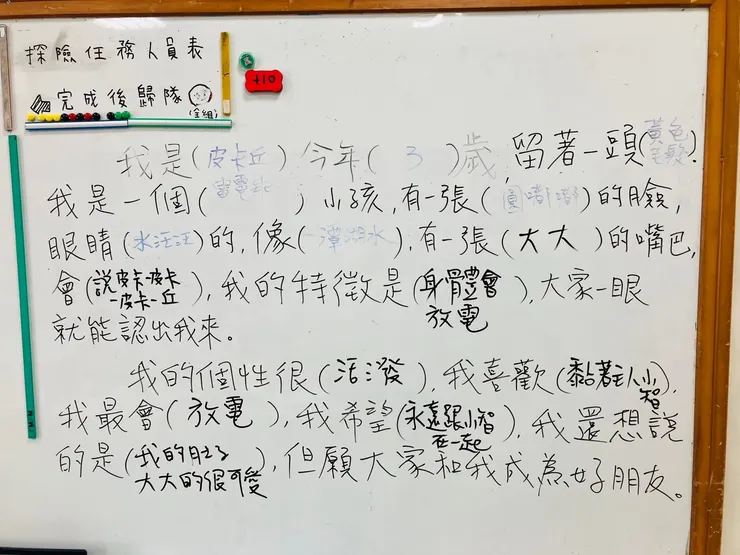 探險任務人員表
完成後歸隊
(全組)
+10
我是(皮卡丘)今年(3)歲,留著一頭(黃色毛髮).
我是一個(會電站)小孩,有一張(圓嘟嘟)的臉,
眼睛(水汪汪)的,像(潭湖水),有一張(大大)的嘴巴,
會(說皮卡-皮卡-皮卡-丘),我的特徵是(身體會放電),大家一眼
就能認出我來。
我的個性很(活潑),我喜歡(黏著主人小智),
我最會(放電),我希望(永遠跟小智在一起),我還想說
的是(我的肚子大大的很可愛),但願大家和我成為好朋友。